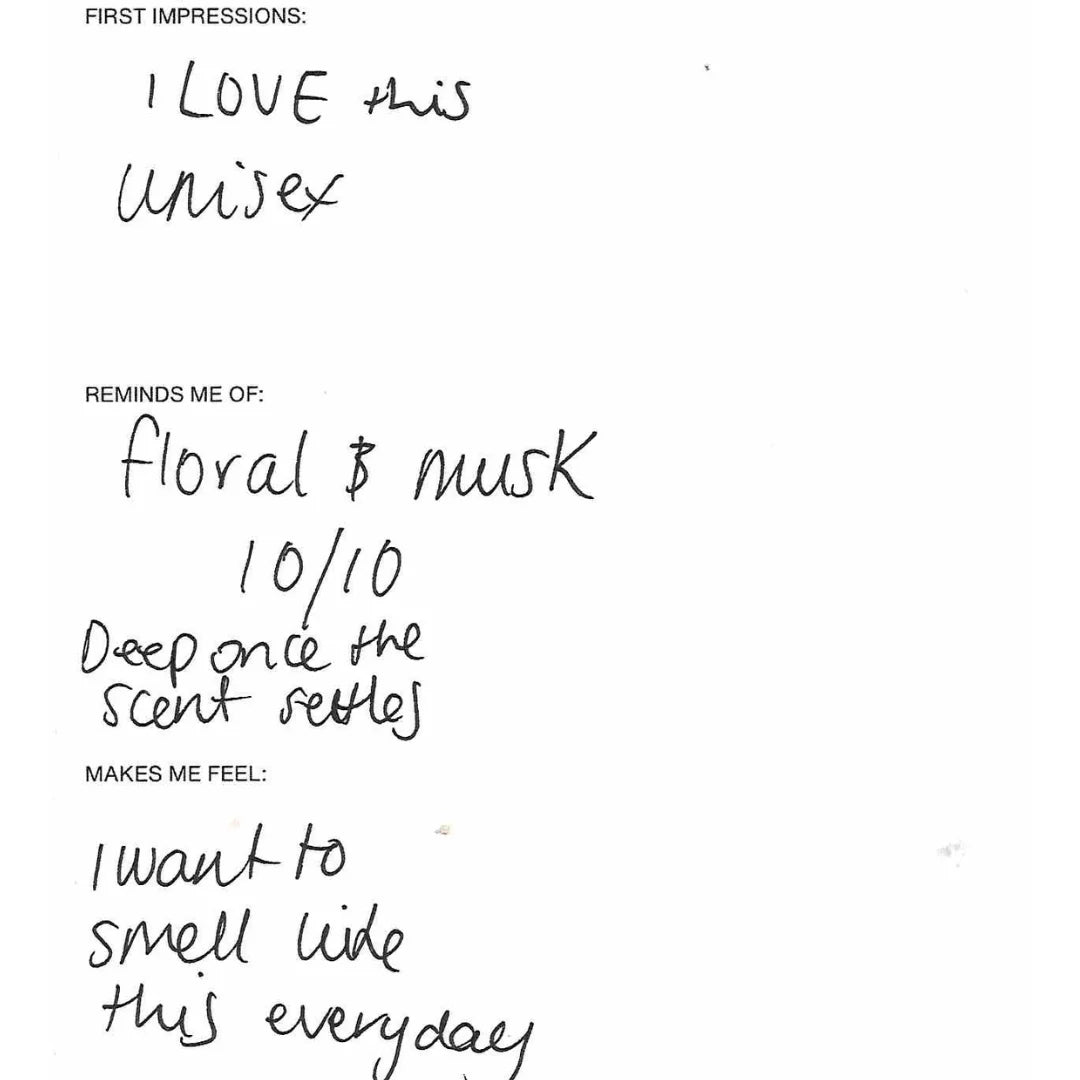 FIRST IMPRESSIONS:
I LOVE this
unisex
REMINDS ME OF:
floral & musk
10/10
Deep once the
scent settles
MAKES ME FEEL:
I want to
smell like
this everyday